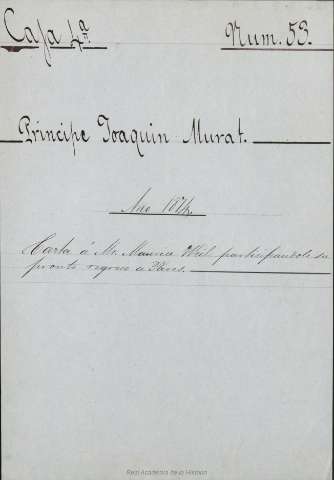 Caja 4ª
Num. 53.
Principe Joaquin Murat.
Año 1874.
Carta á Mr. Maurice Weil participandole su
pronto regreso a Paris.
Real Academia de la Historia